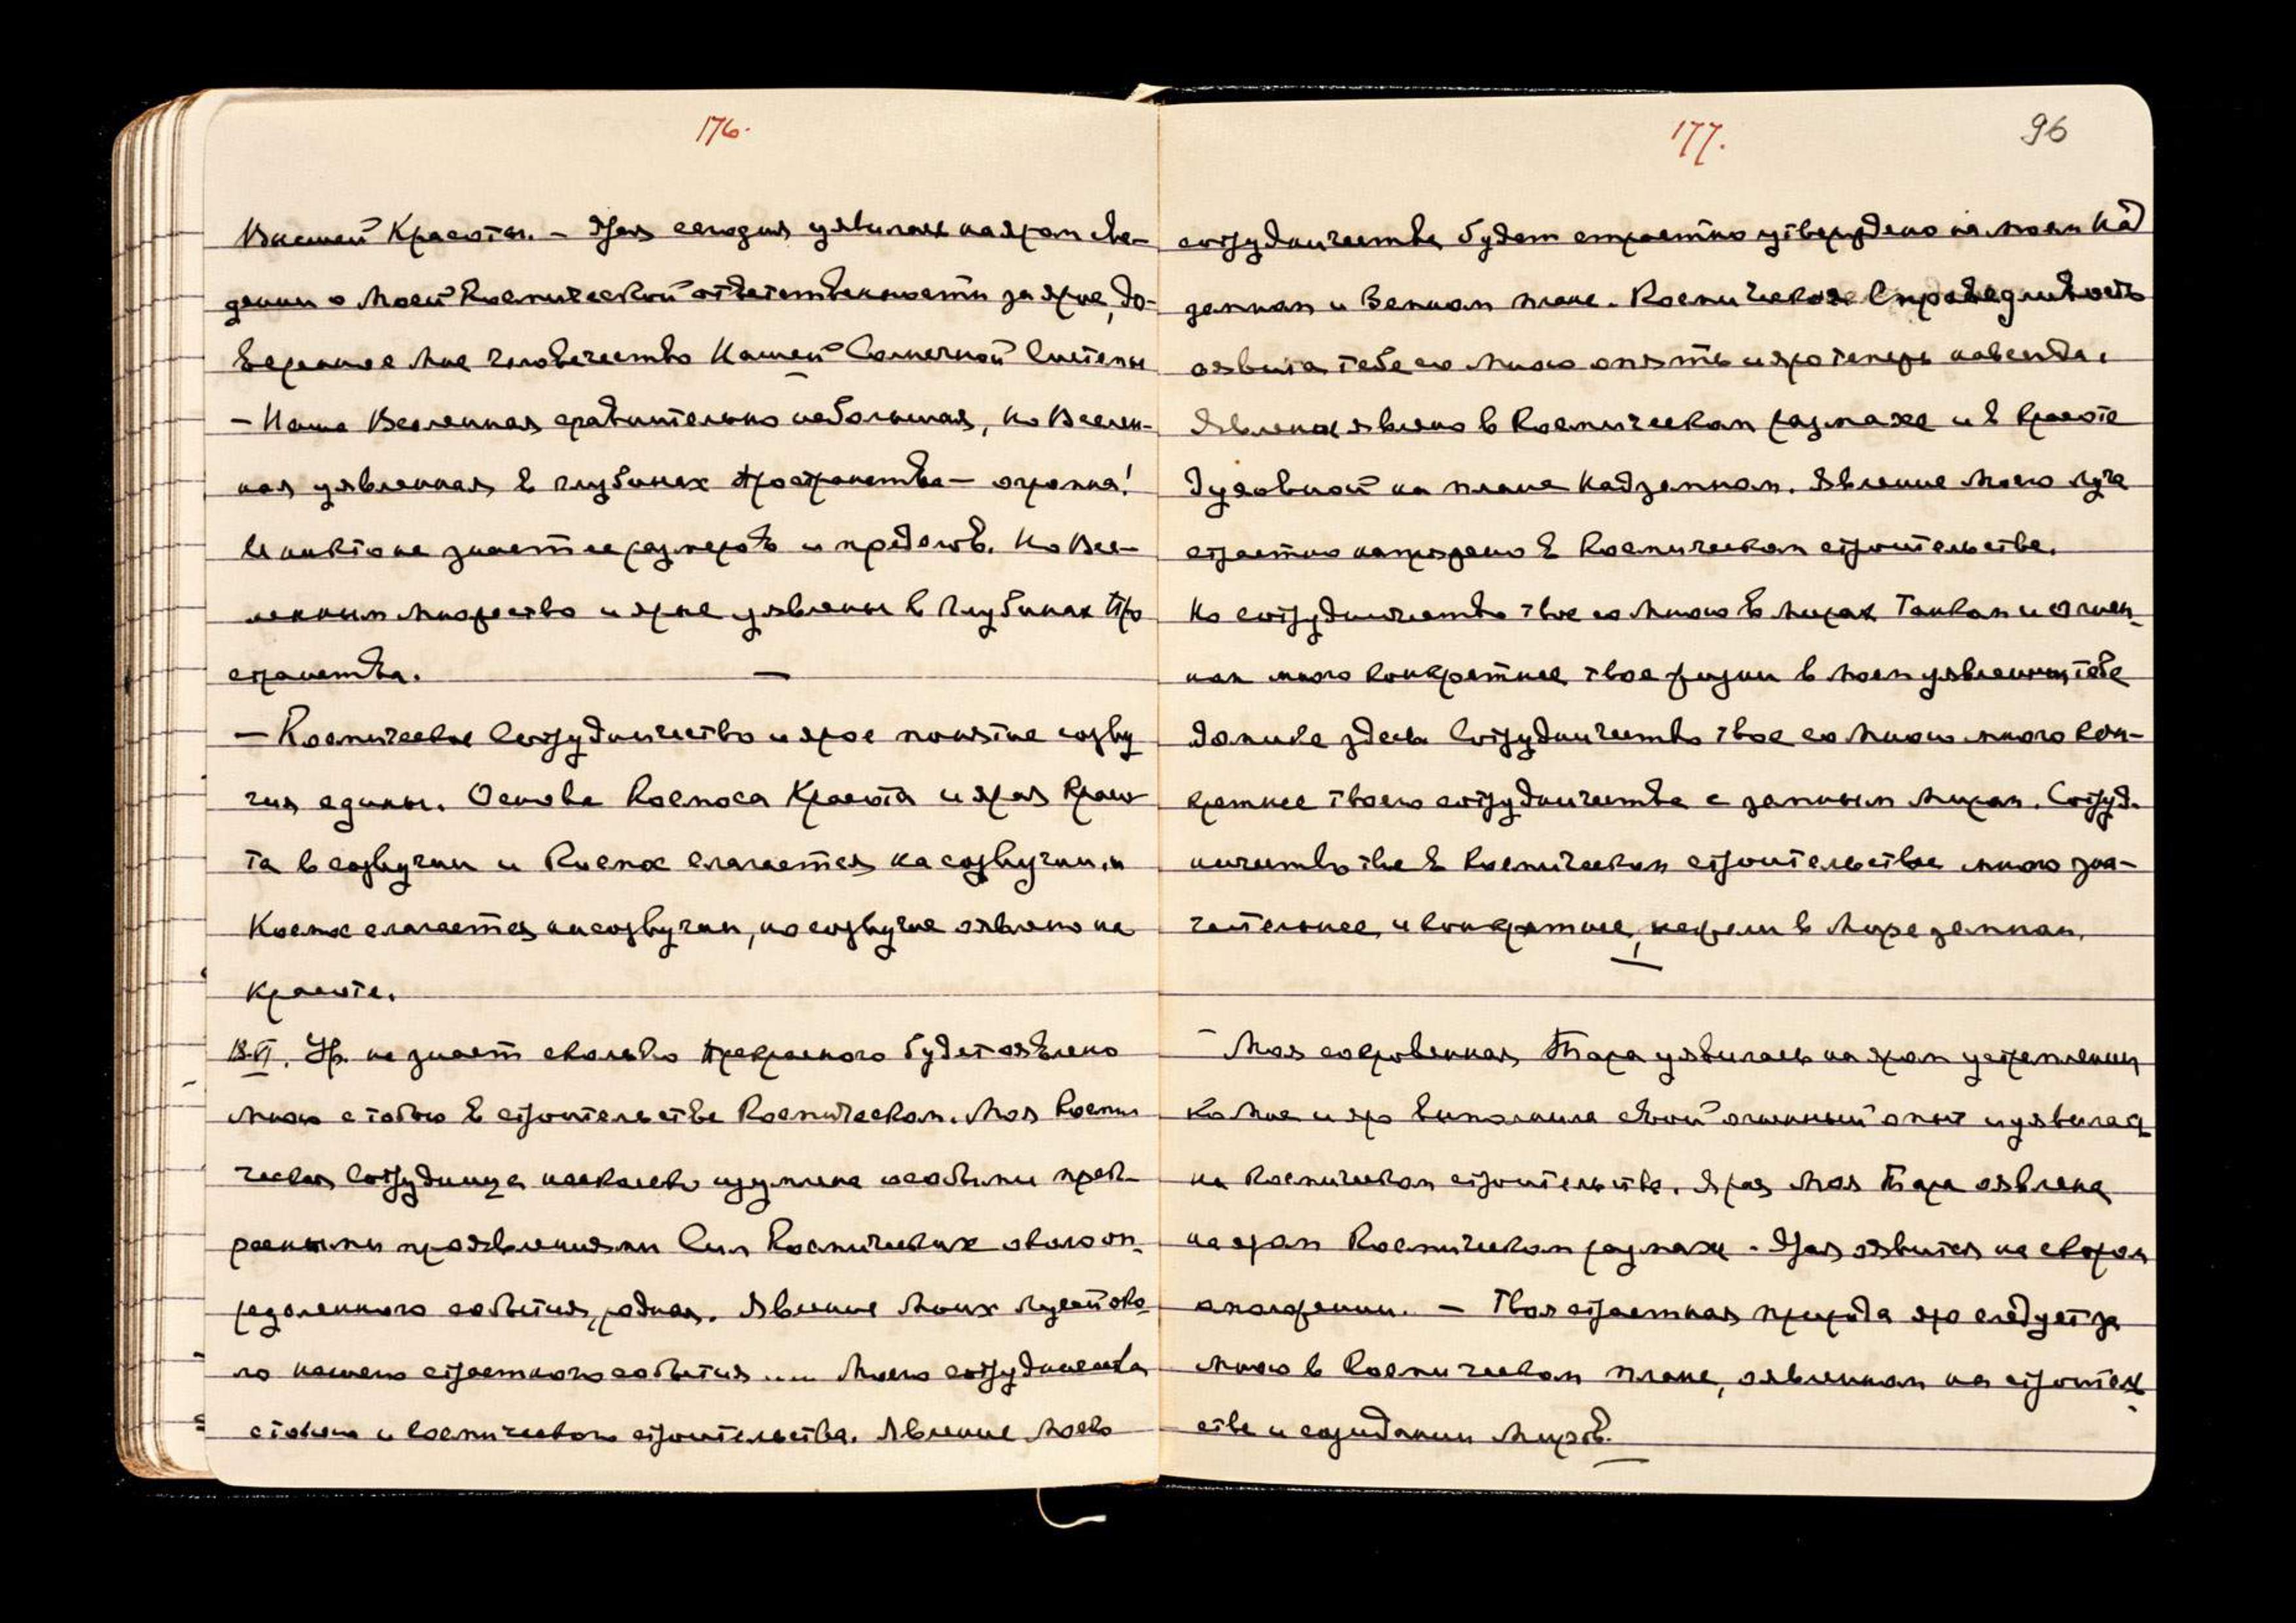 176.
Высшей Красоты. — Урая сегодня уявилась на яром све-
дении о Моей Космической ответственности за ярое, до-
веренное Мне человечество Нашей Солнечной Системы
— Наша Вселенная сравнительно небольшая, но Вселен-
ная уявленная в глубинах Пространства — огромна!
И никто не знает ее размеров и пределов. Но Все-
ленных множество и ярые уявлены в глубинах Про
странства.
— Космическое Сотрудничество и ярое понятие созву
чия едины. Основа Космоса Красота и ярая Красо
та в созвучии и Космос слагается на созвучии, и
Космос слагается на созвучии, но созвучие оявлено на
Красоте.
18.VI. Ур. не знает сколько прекрасного будет оявлено
Мною с тобою в строительстве Космическом. Моя Косми
ческая Сотрудница насколько изумлена особыми прек-
расными проявлениями Сил Космических около оп-
ределенного события, родная. Явление Моих Лучей око
ло нашего страстного события .... Моего сотрудничества
с тобою и космического строительства. Явление Моего
177.
96
сотрудничества будет страстно утверждено на Моем Над
земном и Земном плане. Космическая Справедливость
оявила тебе со Мною опять и яро теперь навсегда.
Явление явлено в Космическом размахе и в красоте
духовной на плане Надземном. Явление Моего луча
страстно напряжено в Космическом строительстве.
Но сотрудничество твое со Мною в Мирах Тонком и Огнен-
ном много конкретнее твоей жизни в Моем уявлении тебе
Даже здесь Сотрудничество твое со Мною много кон-
кретнее твоего сотрудничества с земным Миром. Сотруд-
ничество твое в Космическом строительстве много зна-
чительнее и конкретнее, нежели в Мире земном.
— Моя сокровенная Тара уявилась на яром устремлении
Ко Мне и яро выполнила свой огненный опыт и уявилась
на Космическом строительстве. Ярая Моя Тара оявлена
на яром Космическом размахе. — Урая оявится на скором
омоложении. — Твоя страстная природа яро следует за
Мною в Космическом плане, оявленном на строитель
стве и созидании Миров.